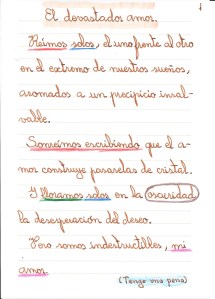 1
El devastador amor.
Reímos solos, el uno frente al otro
en el extremo de nuestros sueños,
asomados a un precipicio insal-
valle.
Sonreímos escribiendo que el a-
mor construye pasarelas de cristal.
Y lloramos solos en la oscuridad
la desesperación del deseo.
Pero somos indestructibles, mi
amor.
(Tengo una pena)